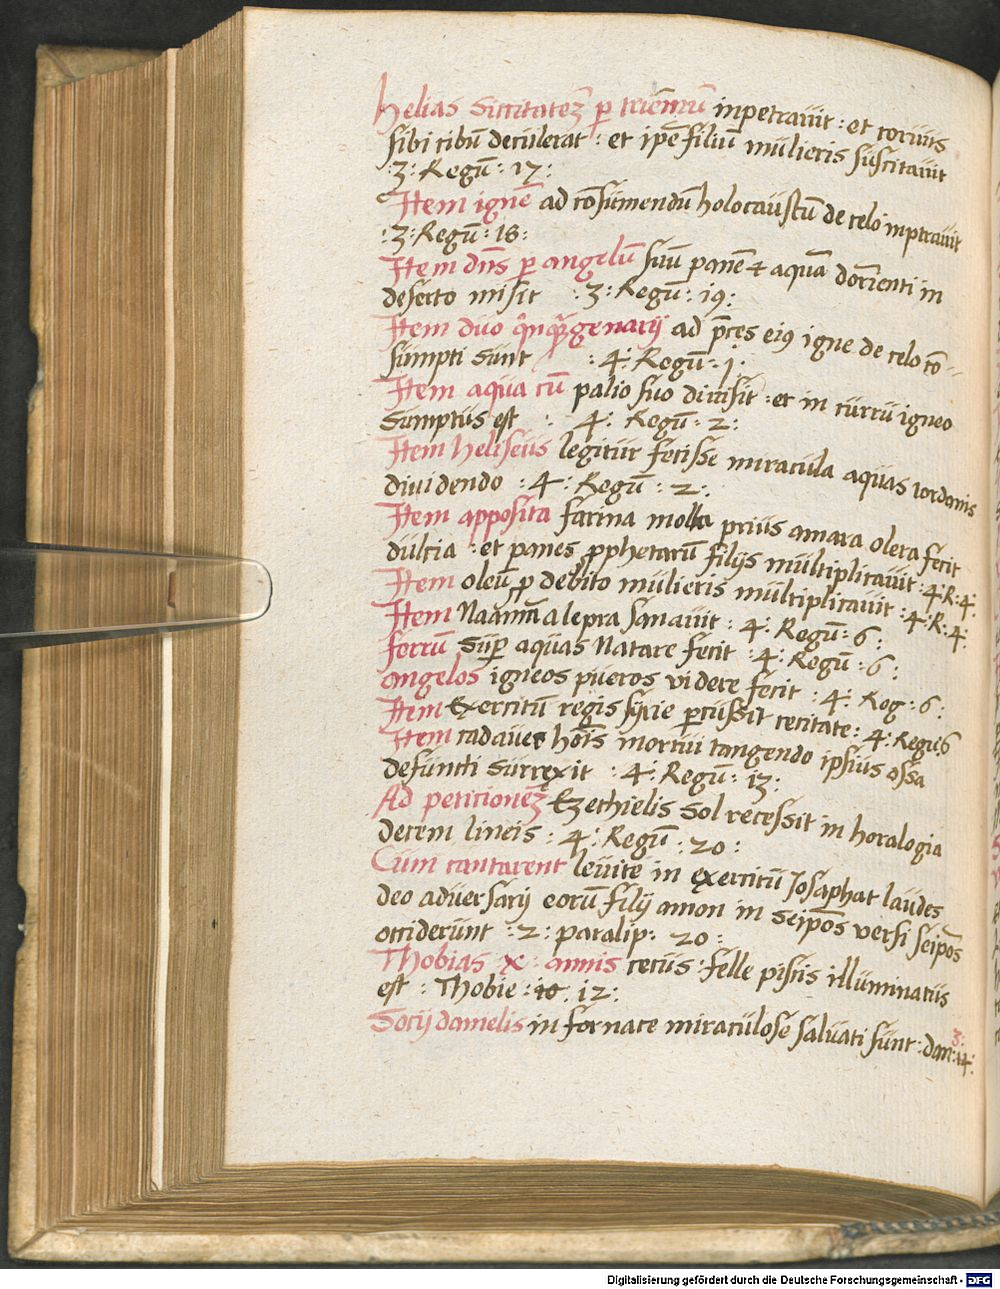 Helias Siccitatez̄ p̄ trieñiū inpetrauit : et coruus
sibi cibū detulerat : et ip̄e filiū mulieris suscitauit
:3: Regū : 17 :
Item ignē ad cōsumendū holocaustū de celo inptrauit
:3: Regū : 18 :
Item dn̄s p̄ angelū suū panē & aquā dormienti in
deserto misit :3: Regū : 19 :
Item duo qͥnqͣgenarij ad p̄ces eiꝯ igne de celo cō-
sumpti sunt :4: Regū : 1 :
Item aqua cū palio suo diuisit : et in curru igneo
Sumptus est : 4: Regū : 2 :
Item heliseus legitur fecisse miracula aquas iordanis
diuidendo :4: Regū : 2 :
Item apposita farina molta prius amara olera fecit
dulcia : et panes ꝓphetarū filijs multiplicauit :4:R:4:
Item oleū ꝓ debito mulieris multiplicauit :4:R:4:
Item Naamā a lepra sanauit : 4: Regū : 6 :
ferrū Sup̄ aquas Natare fecit :4: Regū : 6 :
angelos igneos pueros videre fecit : 4: Reg : 6 :
Item Exercitū regis syrie p̄cussit cecitate : 4: Regū 6
Item cadauer hoīs mortui tangendo ipsius ossa
defuncti surrexit : 4: Regū : 13 :
Ad peticionez̄ Ezechielis Sol recessit in horalogia
decem lineis : 4: Regū : 20 :
Cum cantarent leuite in exercitu Josaphat laudes
deo aduersarij eorū filij amon in seip̄os versi seip̄os
occiderunt :2: paralip : 20 :
Thobias x annis cecus : felle piscis illuminatus
est : Thobie : 10 . 12 :
Socij danielis in fornace miraculose saluati sunt : dan: 14 : 3:
Digitalisierung gefördert durch die Deutsche Forschungsgemeinschaft - DFG